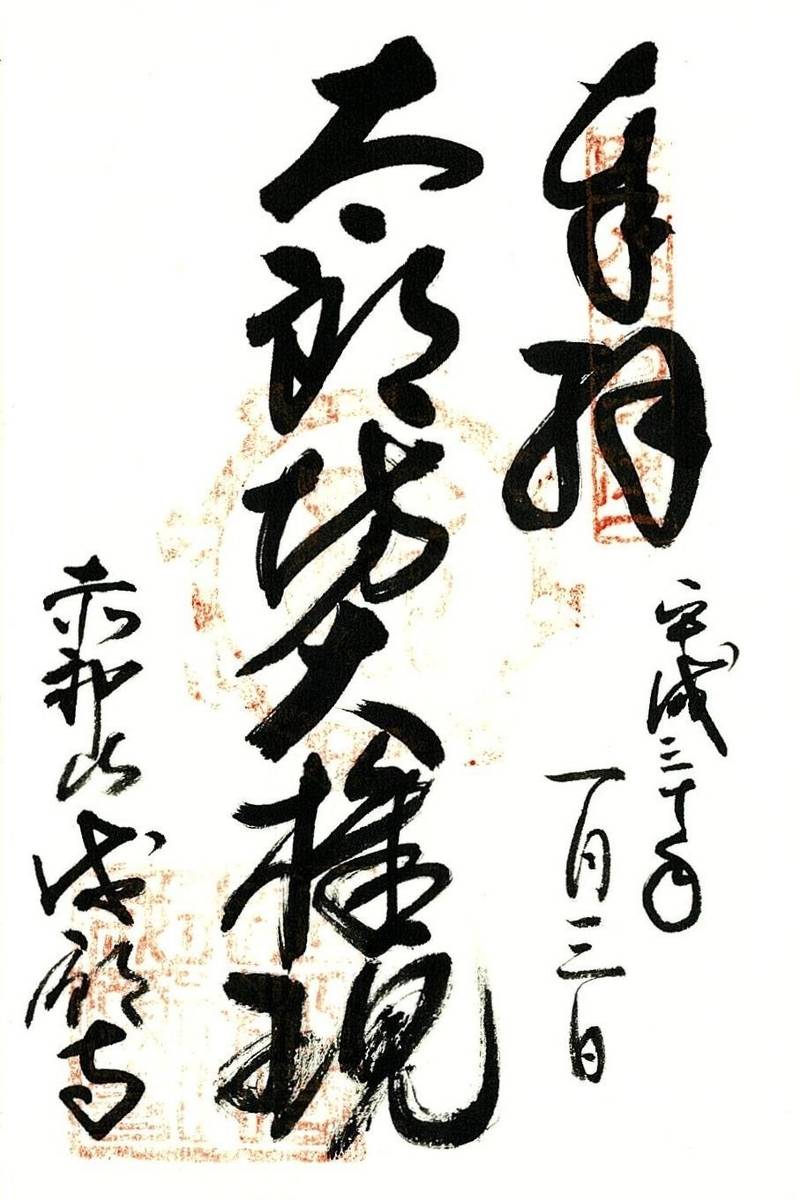 奉拝
平成三十年
一月三日
太郎坊大権現
赤神山
成願寺